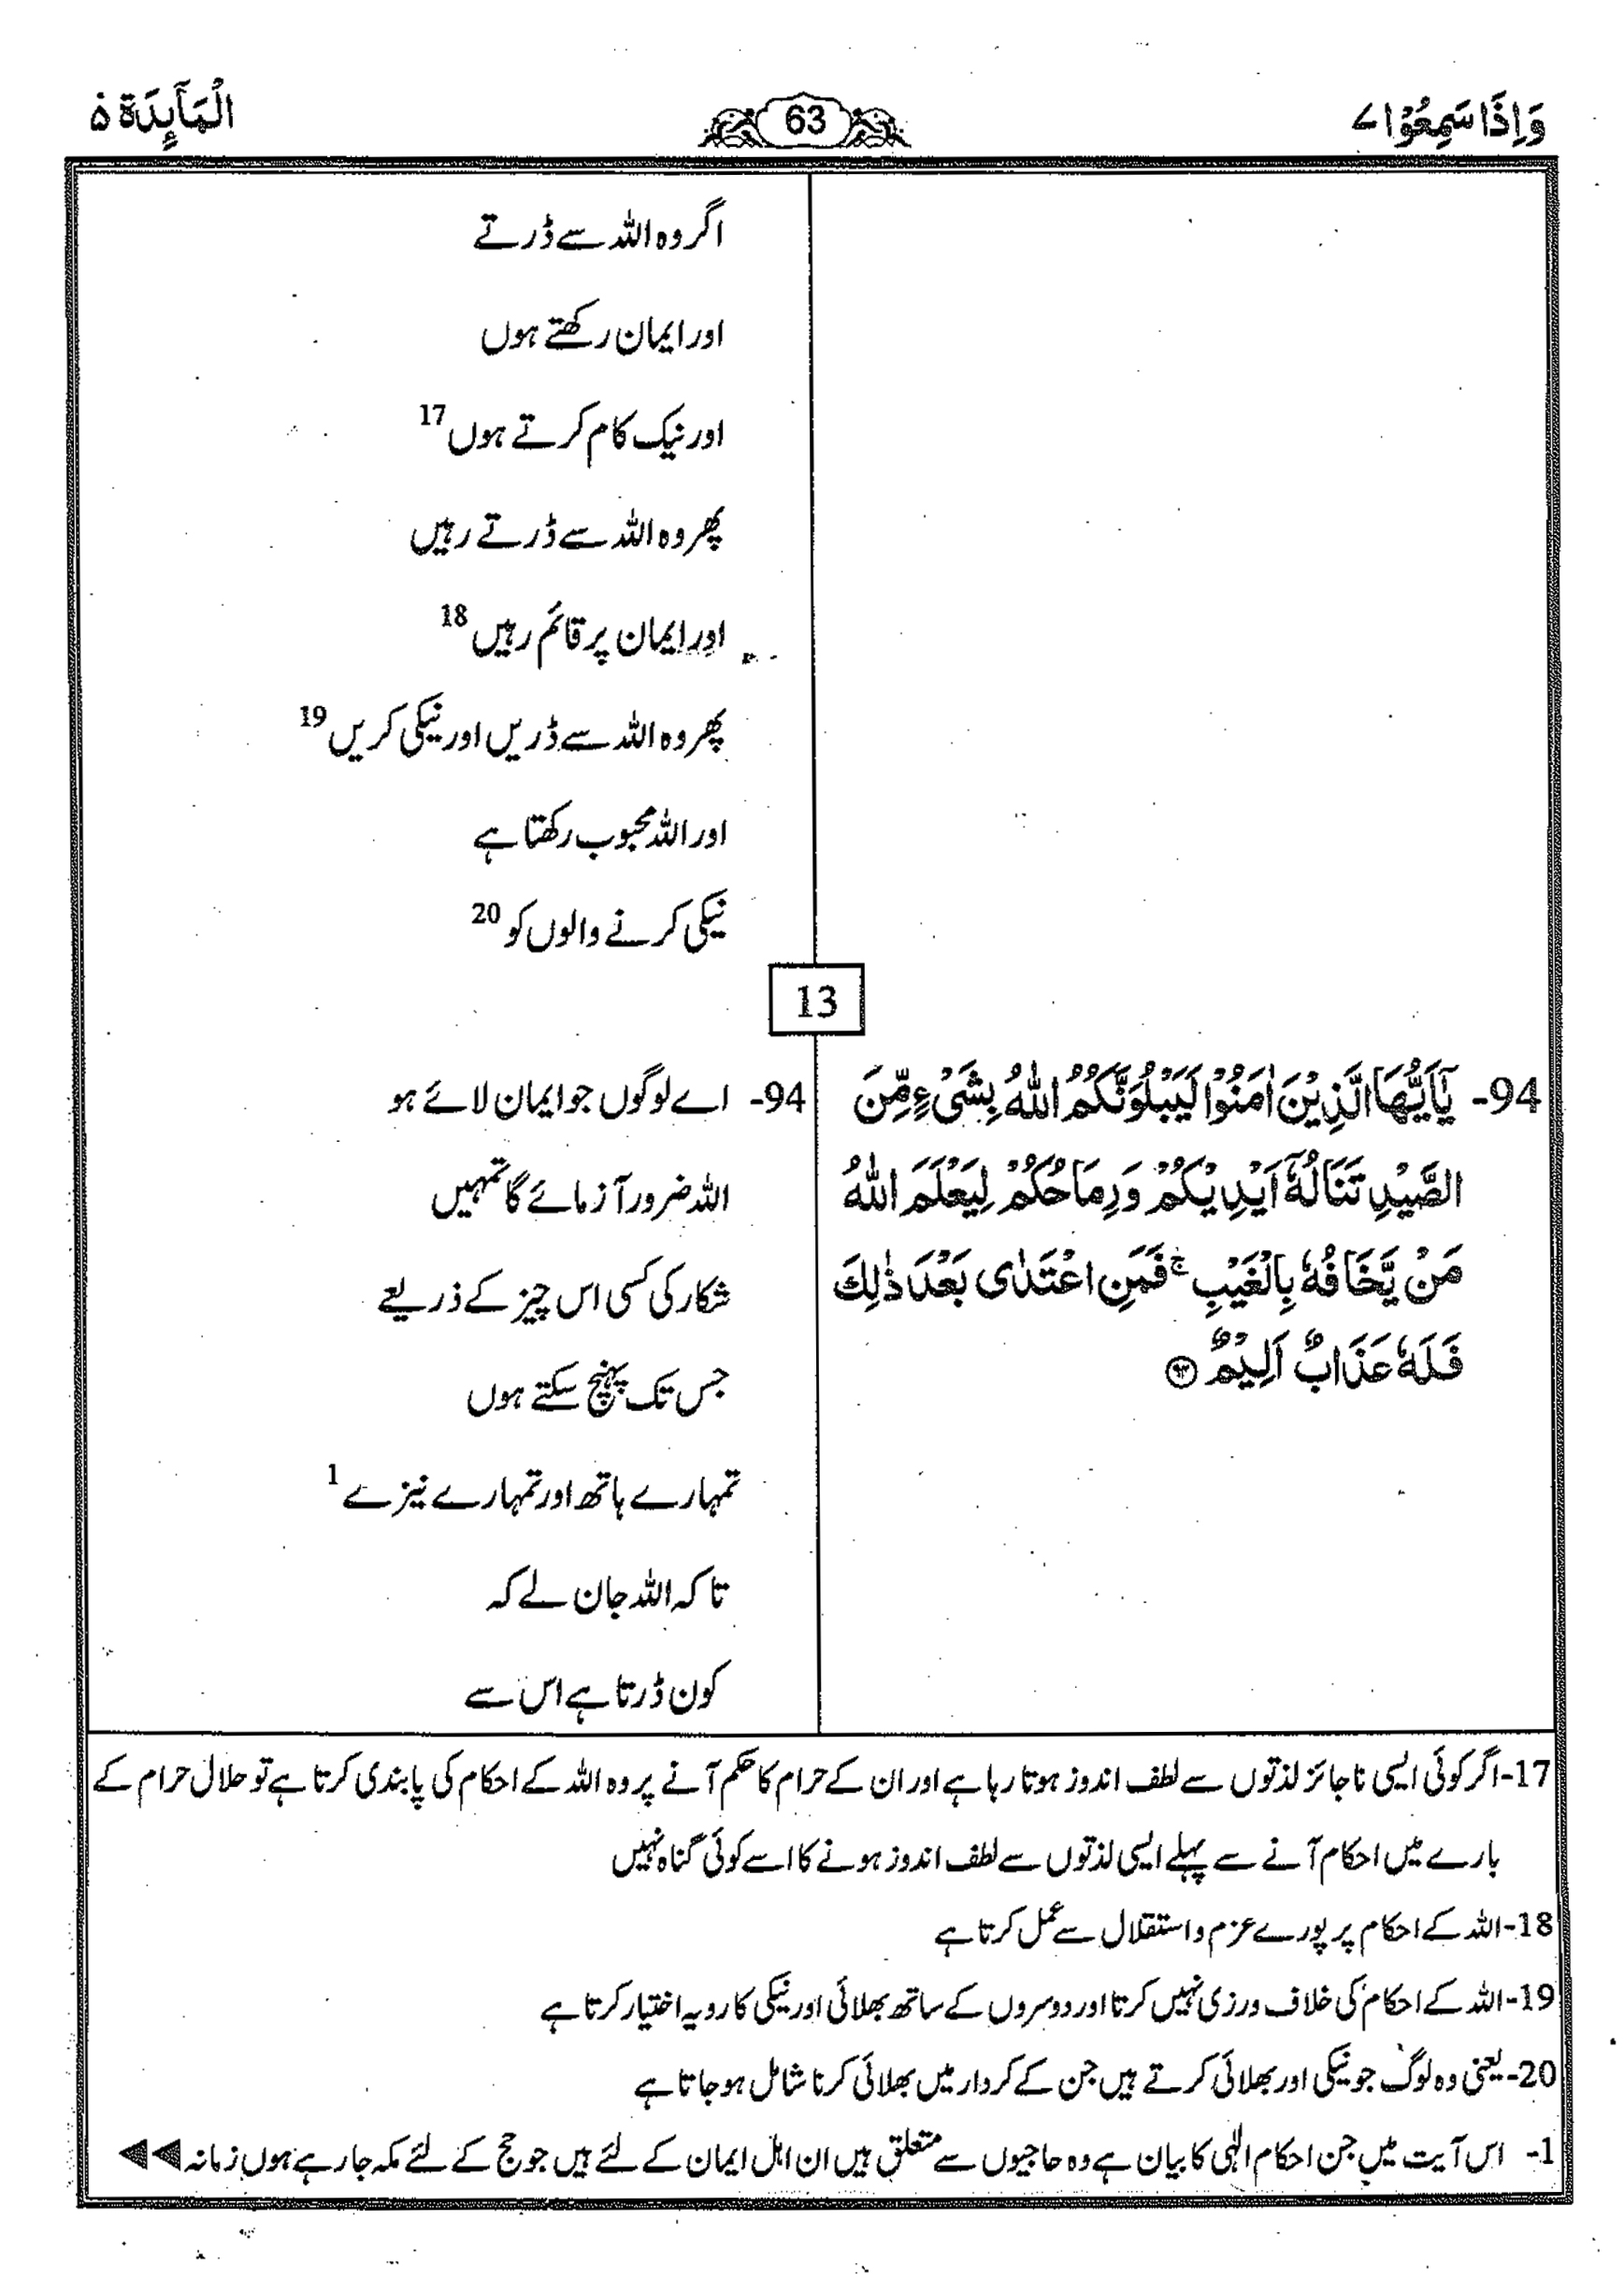 وَاِذَا سَمِعُوْا ۷
63
الْمَآىِٕدَة ۵
اگر وہ اللہ سے ڈرتے
اور ایمان رکھتے ہوں
اور نیک کام کرتے ہوں 17
پھر وہ اللہ سے ڈرتے رہیں
اور ایمان پر قائم رہیں 18
پھر وہ اللہ سے ڈریں اور نیکی کریں 19
اور اللہ محبوب رکھتا ہے
نیکی کرنے والوں کو 20
13
94- يٰۤاَيُّهَا الَّذِيْنَ اٰمَنُوْا لَيَبْلُوَنَّكُمُ اللّٰهُ بِشَىْءٍ مِّنَ
الصَّيْدِ تَنَالُهٗۤ اَيْدِيْكُمْ وَرِمَاحُكُمْ لِيَعْلَمَ اللّٰهُ
مَنْ يَّخَافُهٗ بِالْغَيْبِ ۚ فَمَنِ اعْتَدٰى بَعْدَ ذٰلِكَ
فَلَهٗ عَذَابٌ اَلِيْمٌ ۹۴
94- اے لوگوں جو ایمان لائے ہو
اللہ ضرور آزمائے گا تمہیں
شکار کی کسی اس چیز کے ذریعے
جس تک پہنچ سکتے ہوں
تمہارے ہاتھ اور تمہارے نیزے 1
تاکہ اللہ جان لے کہ
کون ڈرتا ہے اس سے
17- اگر کوئی ایسی ناجائز لذتوں سے لطف اندوز ہوتا رہا ہے اور ان کے حرام کا حکم آنے پر وہ اللہ کے احکام کی پابندی کرتا ہے تو حلال حرام کے
بارے میں احکام آنے سے پہلے ایسی لذتوں سے لطف اندوز ہونے کا اسے کوئی گناہ نہیں
18- اللہ کے احکام پر پورے عزم و استقلال سے عمل کرتا ہے
19- اللہ کے احکام کی خلاف ورزی نہیں کرتا اور دوسروں کے ساتھ بھلائی اور نیکی کا رویہ اختیار کرتا ہے
20- یعنی وہ لوگ جو نیکی اور بھلائی کرتے ہیں جن کے کردار میں بھلائی کرنا شامل ہو جاتا ہے
1- اس آیت میں جن احکام الٰہی کا بیان ہے وہ حاجیوں سے متعلق ہیں ان اہل ایمان کے لئے ہیں جو حج کے لئے مکہ جا رہے ہوں زمانہ ◀◀